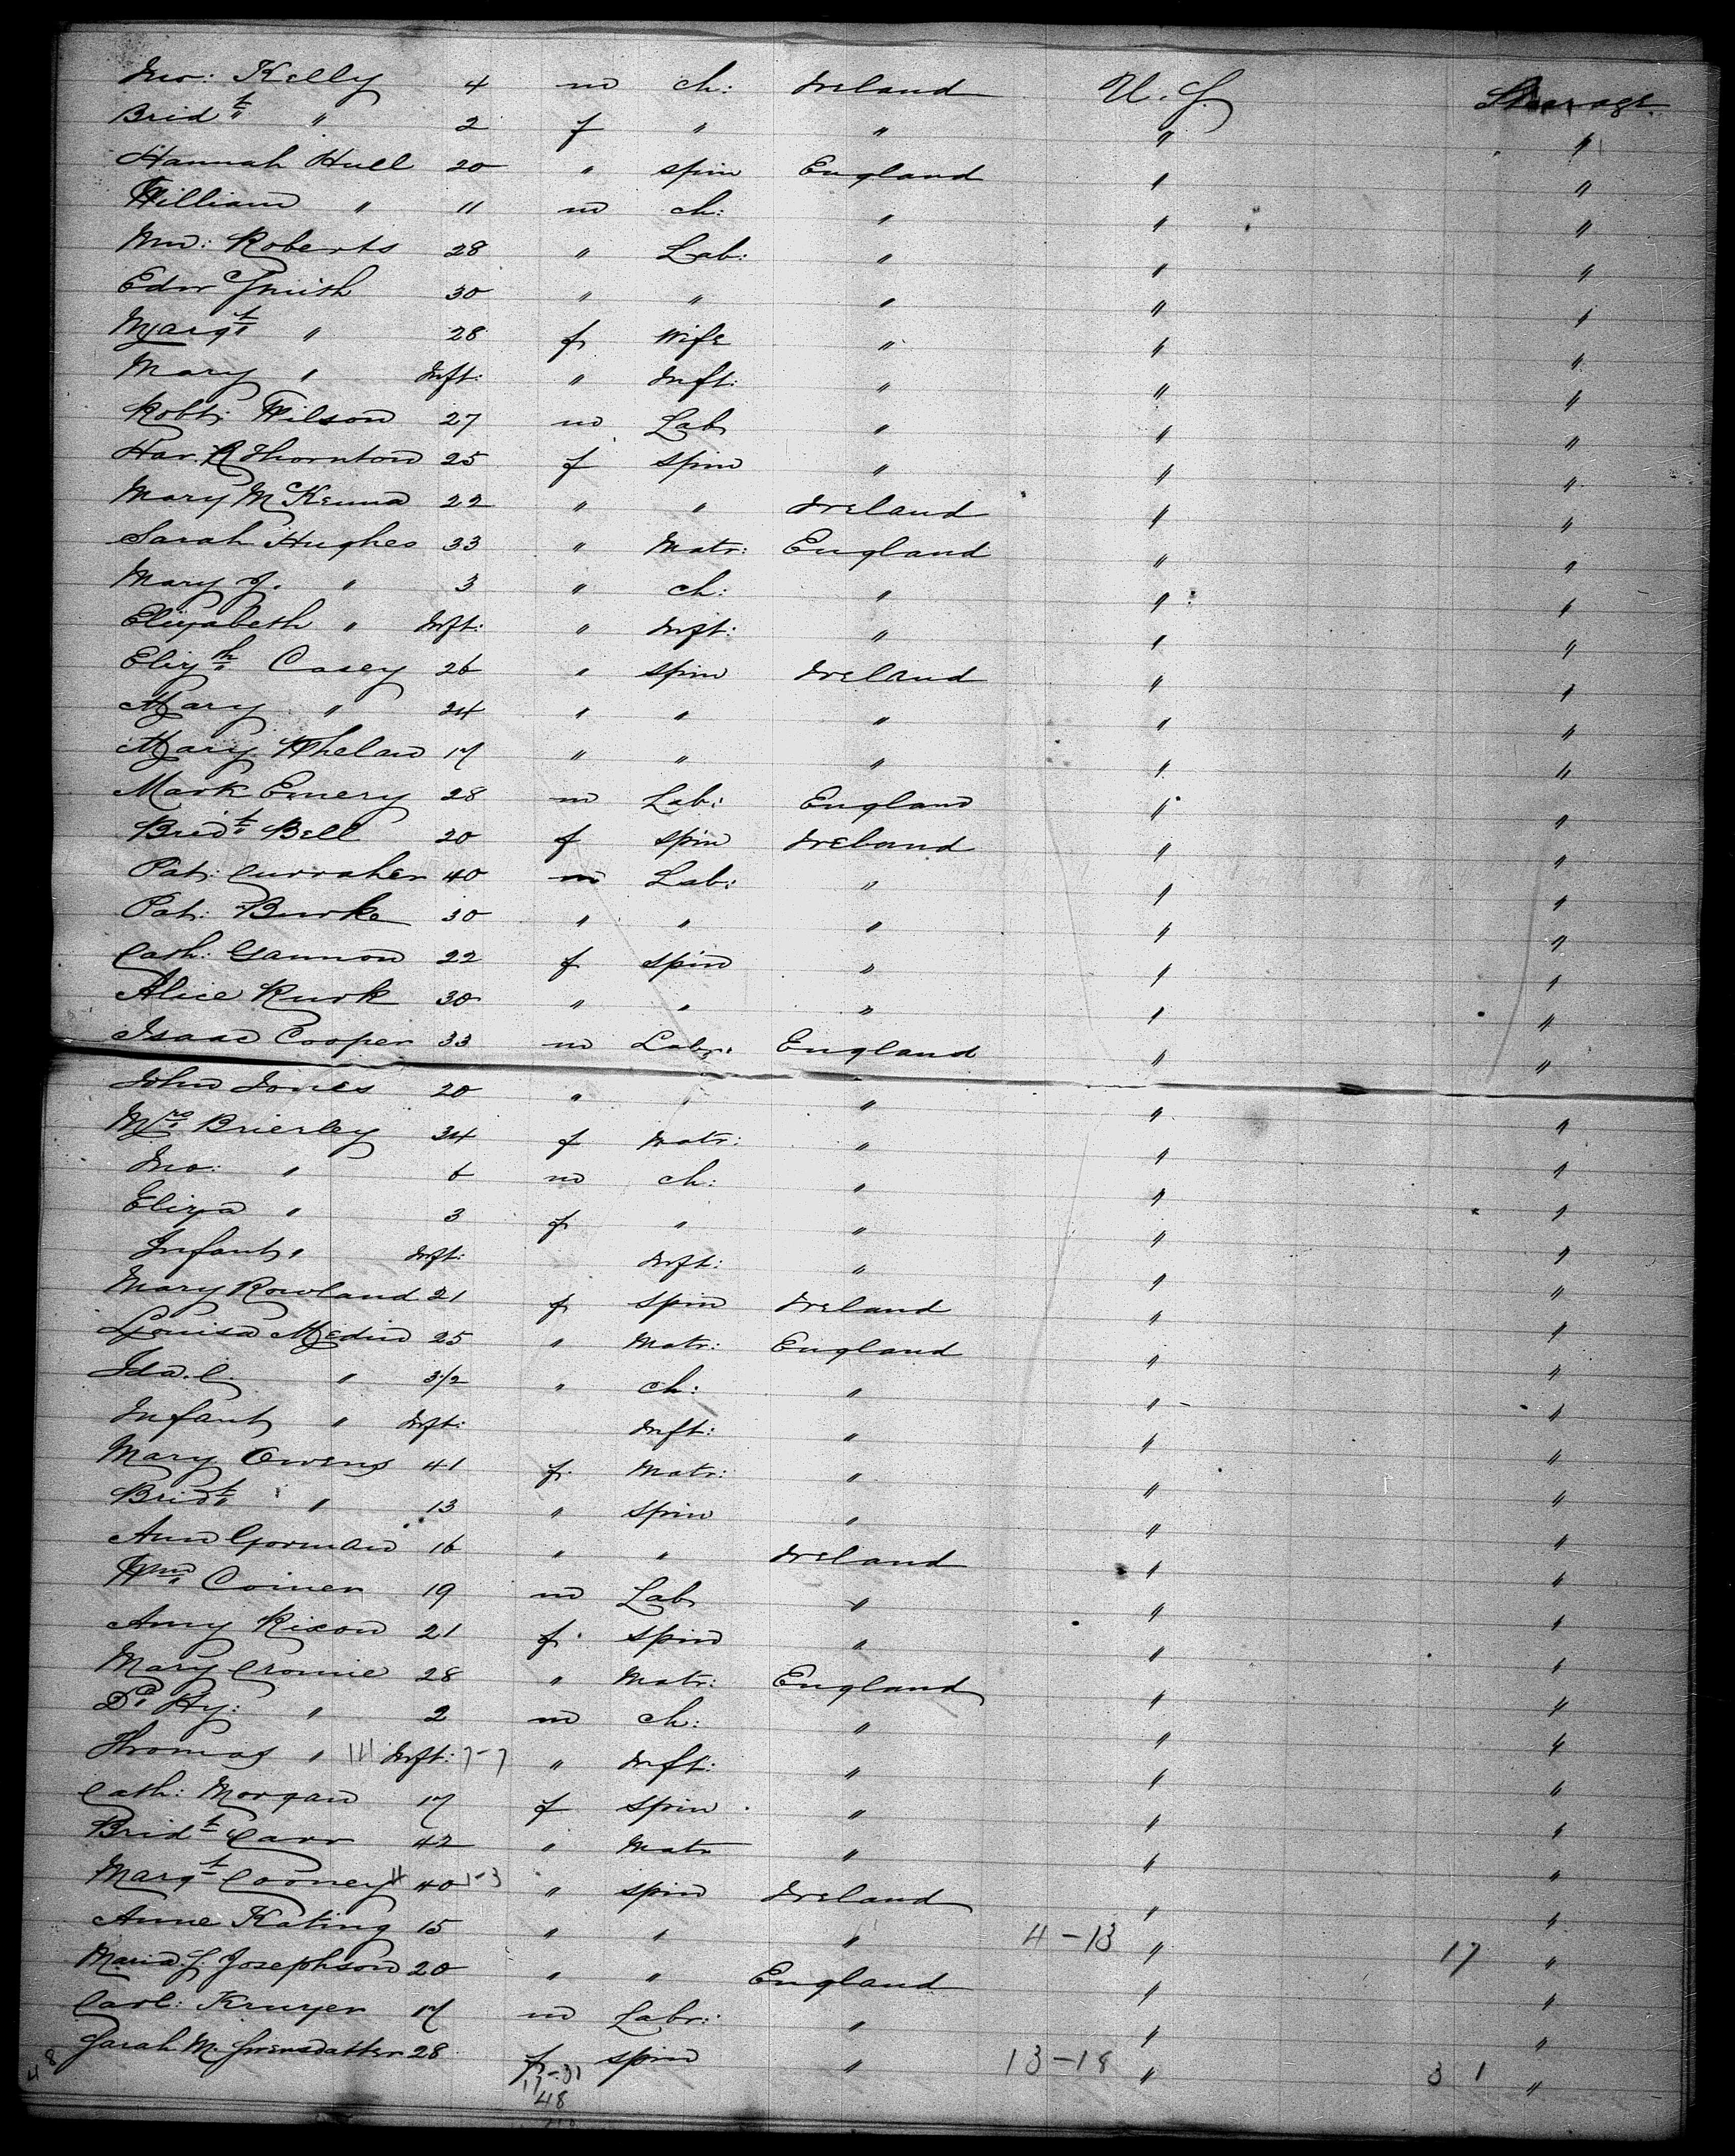 Jno: Kelly 4 m ch: Ireland U.S. Steerage
Brid.t " 2 f " " " "
Hannah Hull 20 " spin England " "
William " 11 m ch: " " "
Wm: Roberts 28 " Lab: " " "
Edw Smith 30 " " " " "
Marg.t " 28 f Wife " " "
Mary " Inft: " Inft: " " "
Robt: Wilson 27 m Lab " " "
Har. R Thornton 25 f Spin " " "
Mary McKenna 22 " " Ireland " "
Sarah Hughes 33 " Matr: England " "
Mary J. " 3 " ch: " " "
Elizabeth " Inft: " Inft: " " "
Eliz.th Casey 26 " Spin Ireland " "
Mary " 24 " " " " "
Mary Whelan 17 " " " " "
Mark Emery 28 m Lab: England " "
Brid.t Bell 20 f spin Ireland " "
Pat: Curraher 40 m Lab: " " "
Pat: Burke 30 " " " " "
Cath: Gannon 22 f spin " " "
Alice Rurk 30 " " " " "
Isaac Cooper 33 m Labr: England " "
John Jones 20 " " " " "
Mrs Brierley 34 f Matr: " " "
Jno: " 6 m ch: " " "
Eliza " 3 f " " " "
Infant " Inft: Inft: " " "
Mary Rowland 21 f Spin Ireland " "
Louisa Medin 25 " Matr: England " "
Ida. C. " 3 1/2 " ch: " " "
Infant " Inft: Inft: " " "
Mary Owens 41 f Matr: " " "
Brid.t " 13 " Spin " " "
Ann Gorman 16 " " Ireland " "
Wm Coiner 19 m Lab " " "
Amy Rixon 21 f Spin " " "
Mary Cromie 28 " Matr: England " "
Dd Hy: " 2 m ch: " " "
Thomas " Inft: 7-7 " Inft: " " "
Cath: Morgan 17 f spin " " "
Brid.t Carr 42 " Matr " " "
Marg.t Cooney 11 40 1-3 " spin Ireland " "
Anne Kating 15 " " " 4-13 " 17 "
Maria. S. Josephson 20 " " England " "
Carl: Kruyer 17 m Labr: " " "
Sarah M. Swensdatter 28 f spin " 13-18 " 31 "
48 17-31
48